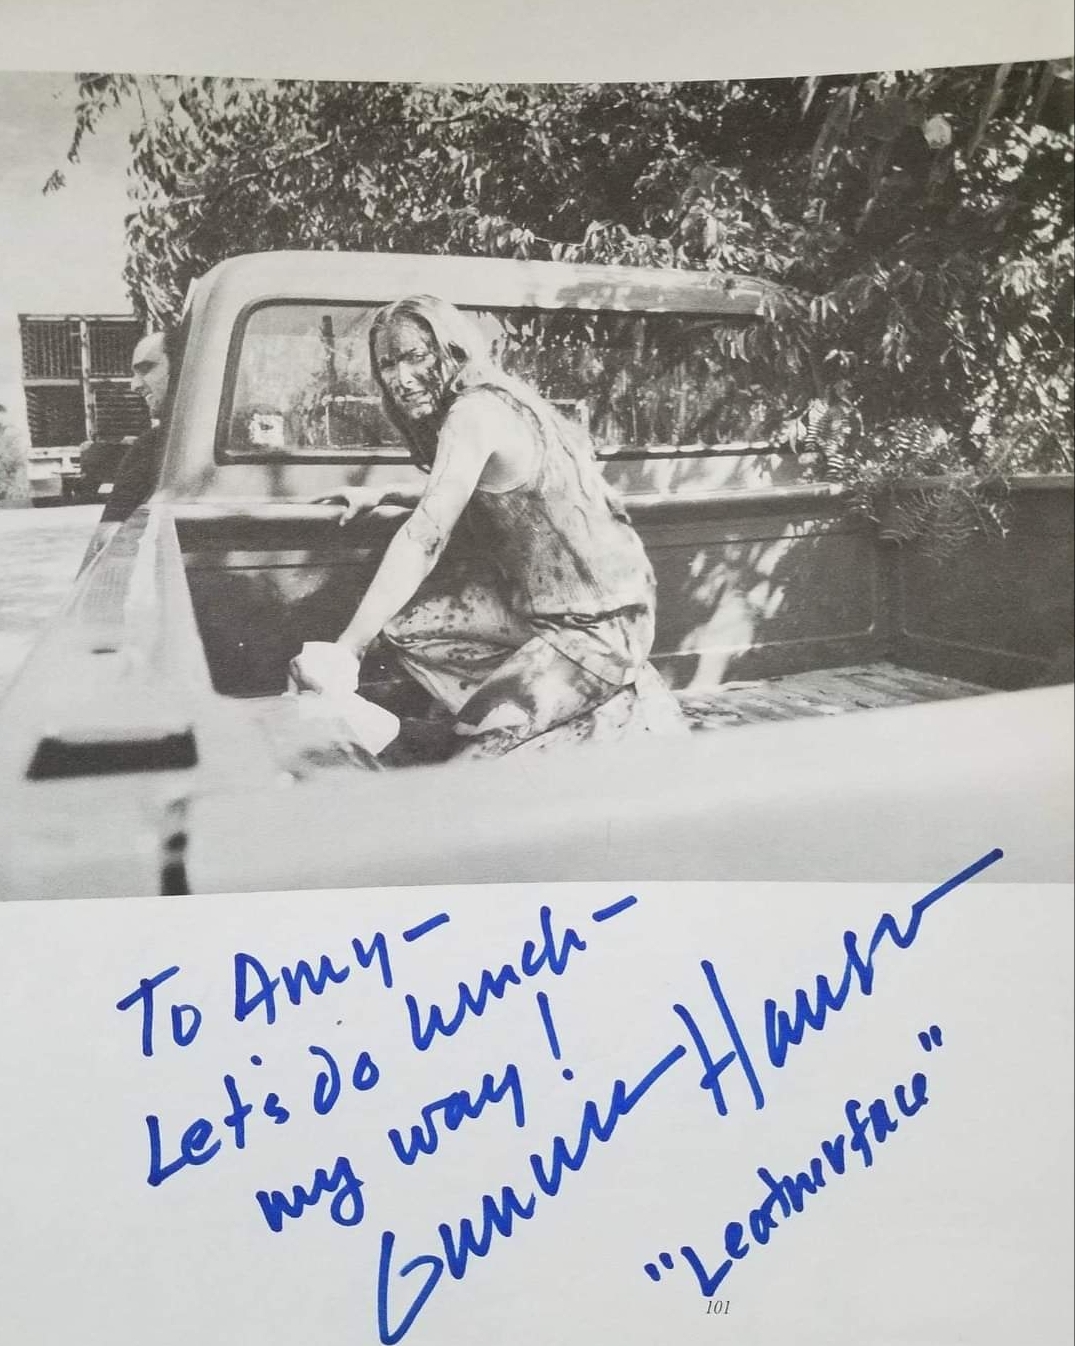 To Amy-
Let's do lunch-
my way!
Gunnar Hansen
"Leatherface"
101